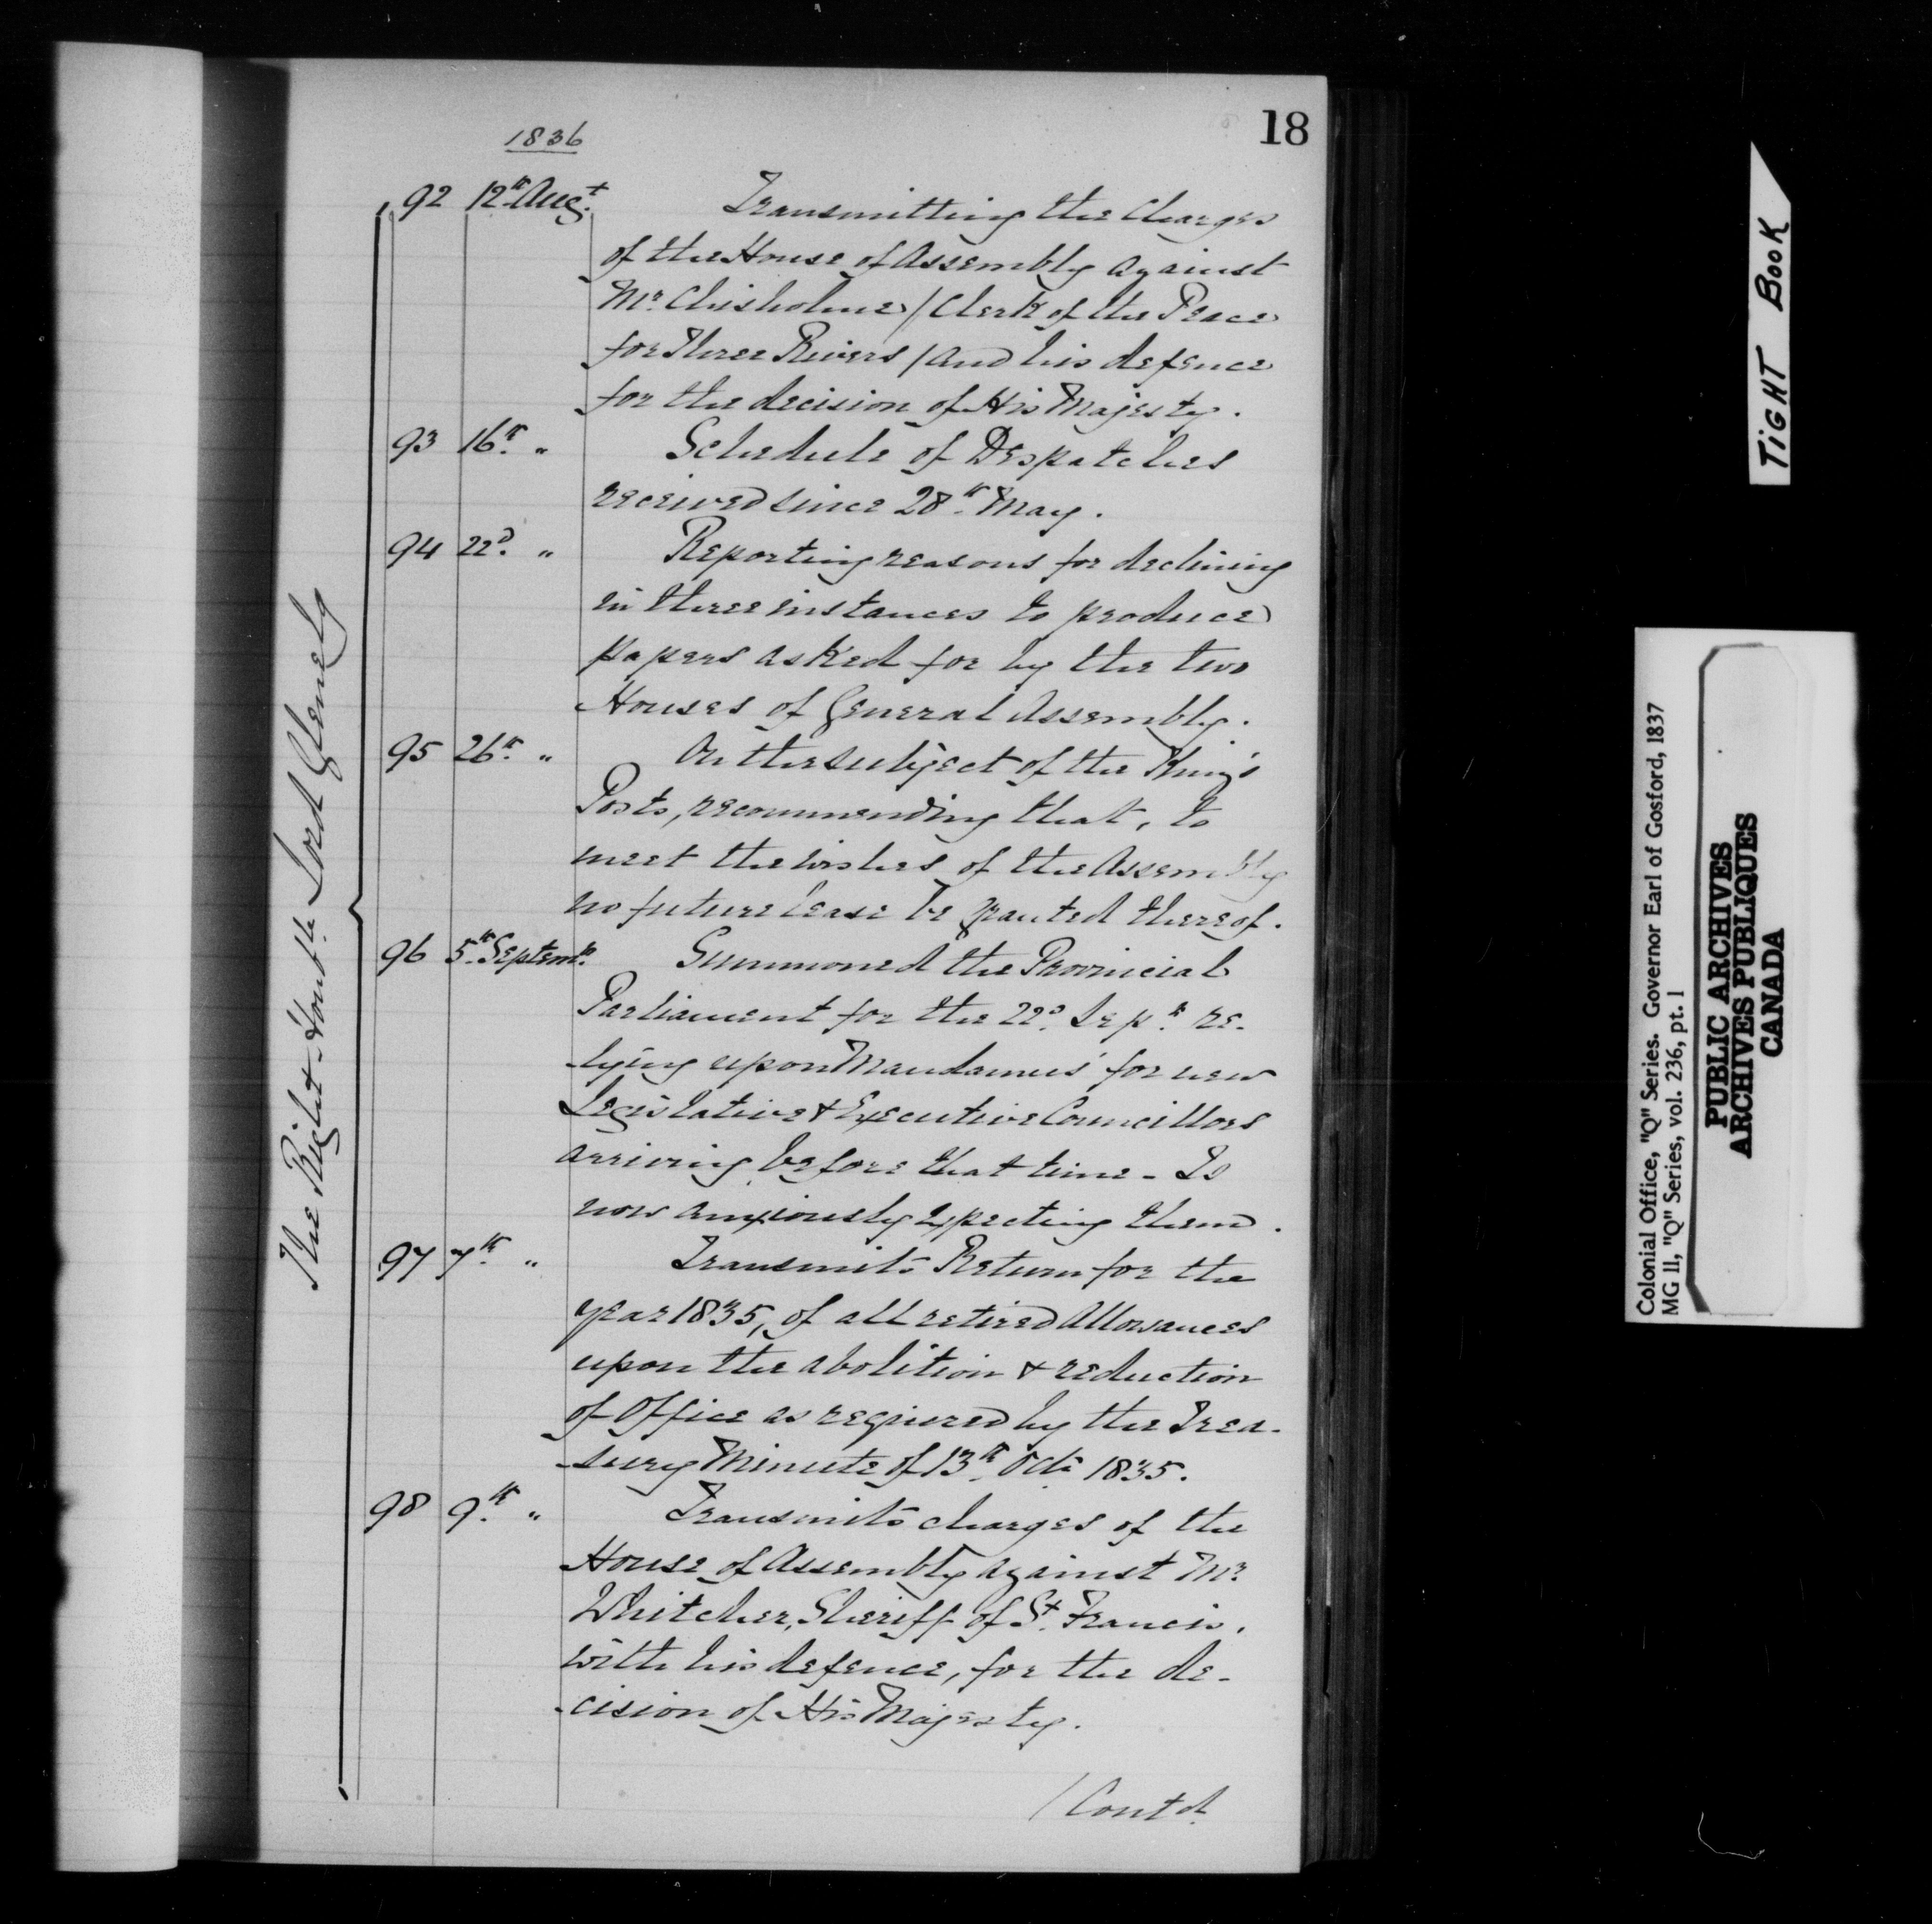 18
1836
The Right Honble. Lord Glenelg
92 12th Augt. Transmitting the Charges
of the House of Assembly against
Mr. Chisholme / Clerk of the Peace
for Three Rivers / and his defence
for the decision of His Majesty.
93 16th. " Schedule of Despatches
received since 28th. May.
94 22d. " Reporting reasons for declining
in three instances to produce
papers asked for by the two
Houses of General Assembly.
95 26th. " On the subject of the King's
Posts, recommending that, to
meet the wishes of the Assembly
no future lease be granted thereof.
96 5th. Septemr. Summoned the Provincial
Parliament for the 22d. Sepr. re-
lying upon Mandamus' for new
Legislative & Executive Councillors
arriving before that time - Is
now anxiously expecting them.
97 7th. " Transmits Return for the
year 1835, of all retired Allowances
upon the abolition & reduction
of Office as required by the Trea-
sury Minute of 13th. Octr. 1835.
98 9th. " Transmits charges of the
House of Assembly against Mr.
Whitcher, Sheriff of St. Francis,
with his defence, for the de-
cision of His Majesty.
/ Contd.
TIGHT BOOK
Colonial Office, "Q" Series. Governor Earl of Gosford, 1837
MG 11, "Q" Series, vol. 236, pt. 1
PUBLIC ARCHIVES
ARCHIVES PUBLIQUES
CANADA